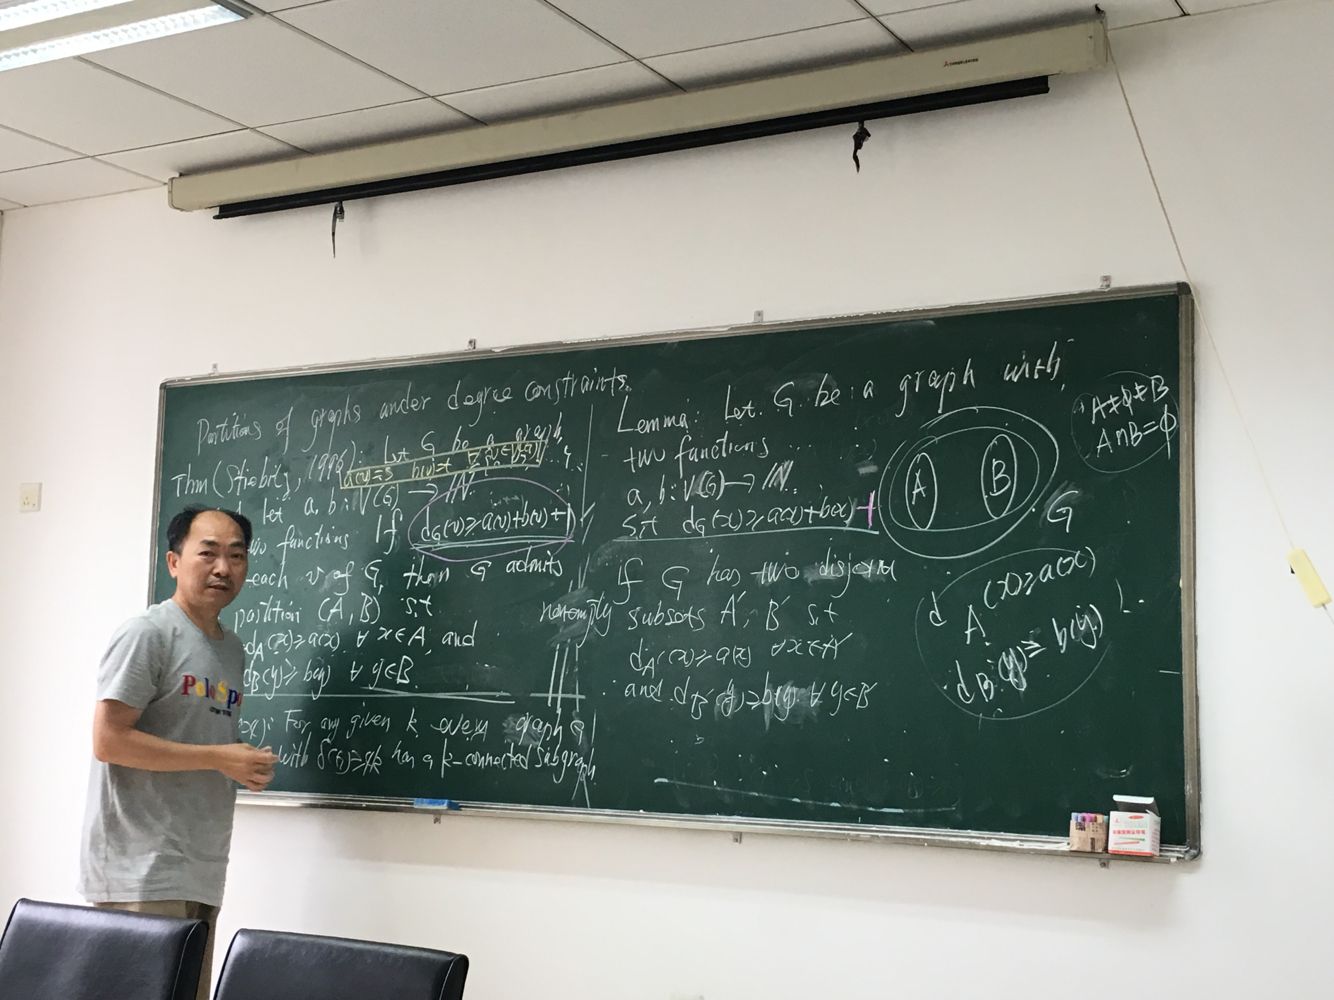 Partitions of graphs under degree constraints.
Thm (Stiebitz, 1996): Let G be a graph,
a(v)=s b(v)=t ∀ v∈V(G)
let a, b: V(G) → ℕ
two functions If d_G(v) ≥ a(v)+b(v)+1
each v of G, then G admits
partition (A, B) s.t
d_A(x) ≥ a(x) ∀ x∈A, and
d_B(y) ≥ b(y) ∀ y∈B
For any given k every graph G
with δ(G) ≥ 4k has a k-connected subgraph
Lemma: Let G be a graph with
two functions
a, b: V(G) → ℕ
s.t d_G(x) ≥ a(x)+b(x)-1
If G has two disjoint
nonempty subsets A', B' s.t
d_A'(x) ≥ a(x) ∀ x∈A'
and d_B'(y) ≥ b(y) ∀ y∈B'
A B
G
A≠ϕ≠B
A∩B=ϕ
d_A(x) ≥ a(x)
d_B(y) ≥ b(y)